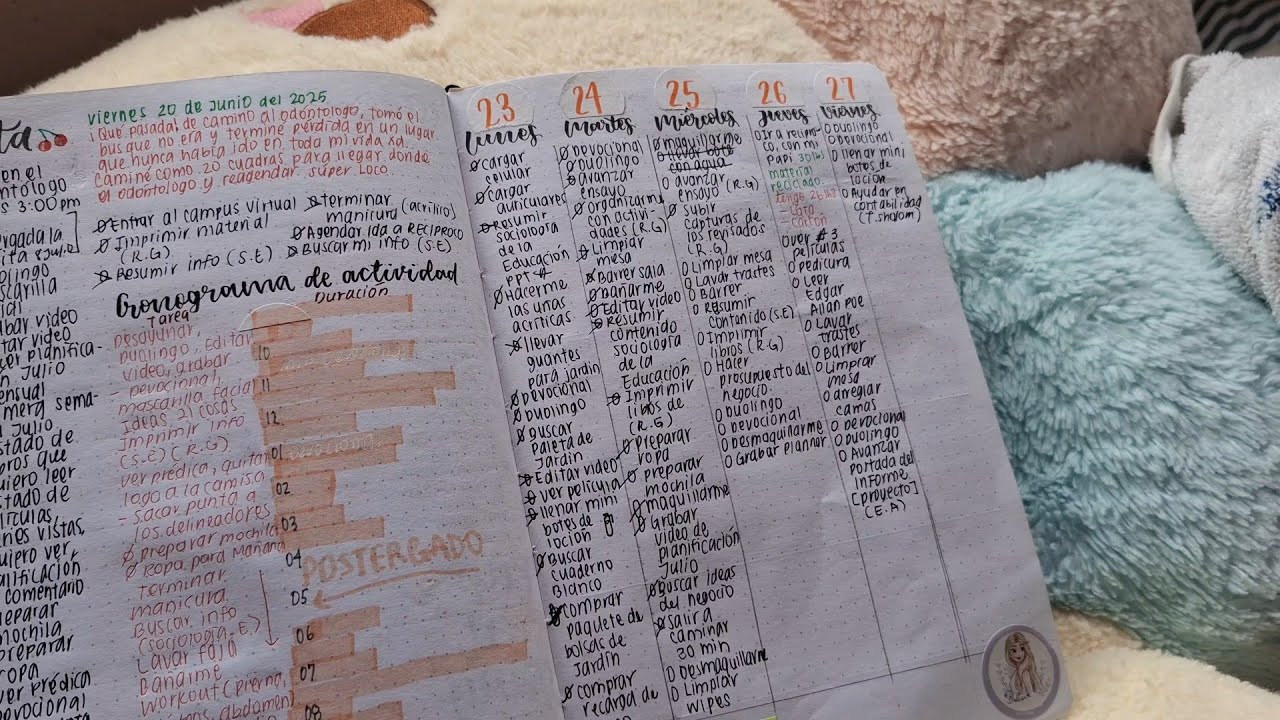 ta
en el
ontólogo
s 3:00pm
ergada la
ita
olingo
scarilla
l
abar video
tar video
cer planifica-
n Julio
ensual
merg sema-
Julio
stado de
bros que
uiero leer
stado de
lículas,
nes vistas,
uiero ver,
alificación
comentario
reparar
mochila
preparar
ropa
ver prédica
evocional
viernes 20 de Junio del 2025
¡Qué pasada, de camino al odontólogo, tomó el
bus que no era y terminé perdida en un lugar
que nunca había ido en toda mi vida xa.
caminé como 20 cuadras para llegar donde
el odontólogo y reagendar súper Loco.
Entrar al campus virtual
Imprimir material
(R.G)
Resumir info (S.E)
terminar
manicura (acrílico)
Agendar ida a RECIPROCO
Buscar mi info (S.E)
Cronograma de actividad
Tarea
Duración
Desayunar,
Duolingo, Editar
video, grabar
- pevocional,
mascarilla facial
Ideas 21 cosas
Imprimir info
(S.E) (R.G)
ver prédica, quitar
logo a la camisa
- Sacar punta a
los delineadores
preparar mochila
Ropa para Mañana
Terminar
manicura
Buscar info
(sociología.E)
Lavar faja
Bañarme
Workout (pierna,
abdomen)
10
11
12
01
02
03
04
05
06
07
08
POSTERGADO
23
Lunes
cargar
celular
cargar
auriculares
Resumir
sociología
de la
Educación
ppt #
Hacerme
las uñas
acrílicas
llevar
guantes
para jardín
pevocional
Duolingo
Buscar
paleta de
Jardín
Editar video
ver película
llenar mini
botes de
loción
Buscar
cuaderno
Blanco
comprar
paquete de
bolsas de
Jardín
comprar
recarga de
24
Martes
pevocional
Duolingo
avanzar
ensayo
organizarme
con activi-
dades (R.G)
Limpiar
mesa
Barrer sala
Bañarme
Editar video
Resumir
contenido
sociología
de la
Educación
Imprimir
libros de
(R.G)
preparar
ropa
preparar
mochila
maquillarme
Grabar
video de
planificación
Julio
Buscar ideas
del negocio
salir a
caminar
30 min
Desmaquillarme
Limpiar
wipes
25
Miércoles
maquillarme
con agua
avanzar
ensayo (R.G)
subir
capturas de
los revisados
(R.G)
Limpiar mesa
Lavar trastes
Barrer
Resumir
contenido (S.E)
Imprimir
libros (R.G)
Hacer
prosupuesto del
negocio
Duolingo
Devocional
Desmaquillarme
Grabar plannar
26
Jueves
Ir a recipro-
co, con mi
Papi. 30 lbs
material
reciclado.
tengo 26 lbs
- Lata
- Cartón
ver #3
películas
Pedicura
Leer
Edgar
Allan Poe
Lavar
trastes
Barrer
Limpiar
mesa
arreglar
camas
Devocional
Duolingo
Avanzar
portada del
informe
[proyecto]
(E.A)
27
viernes
Duolingo
Devocional
llenar mini
botes de
loción
Ayudar en
contabilidad
(T. shalom)